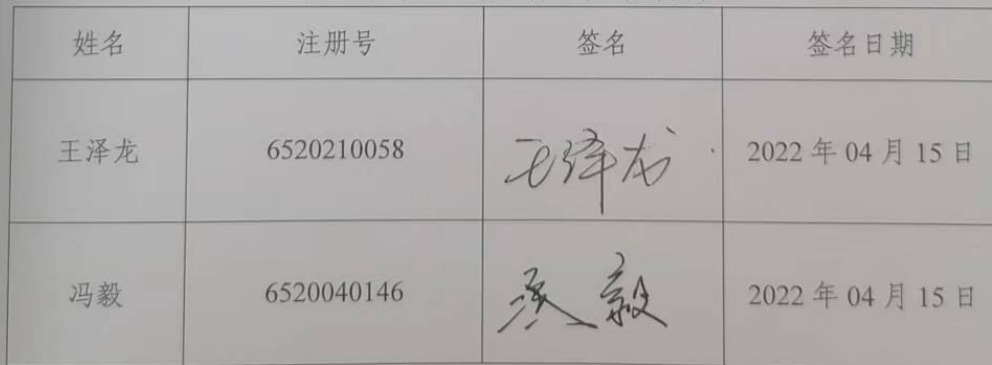 姓名 注册号 签名 签名日期
王泽龙 6520210058 王泽龙 2022 年 04 月 15 日
冯毅 6520040146 冯毅 2022 年 04 月 15 日